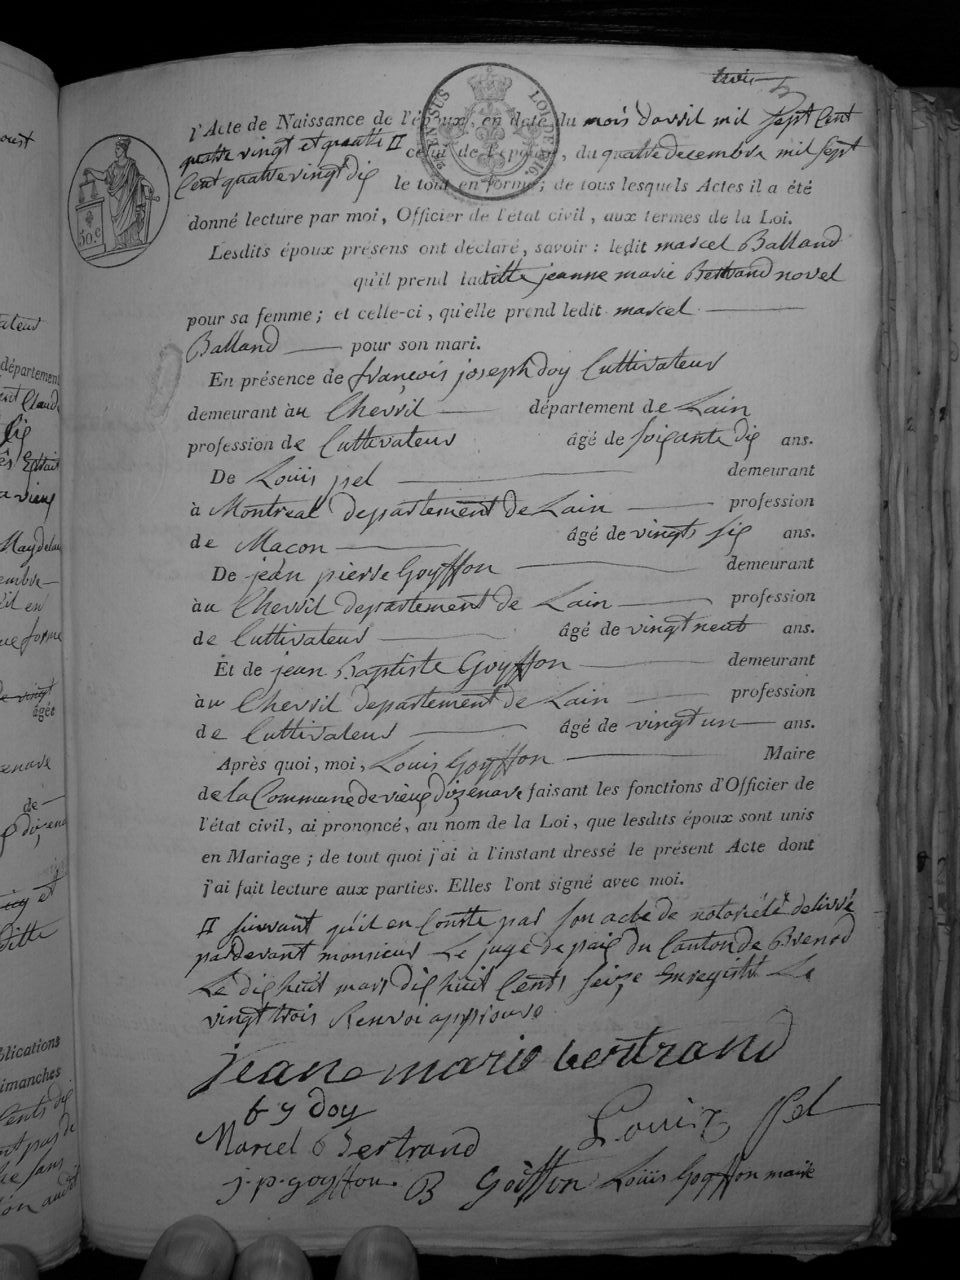 trois
l'Acte de Naissance de l'époux, en date du mois d'avril mil sept Cent
quatre vingt et quatre # celui de l'épouse, du quatre decembre mil sept
Cent quatre vingt dix le tout en forme; de tous lesquels Actes il a été
donné lecture par moi, Officier de l'état civil, aux termes de la Loi.
Lesdits époux présens ont déclaré, savoir: ledit marcel Balland
qu'il prend ladite jeanne marie Bertrand novel
pour sa femme; et celle-ci, qu'elle prend ledit marcel
Balland pour son mari.
En présence de françois joseph doy Cultivateur
demeurant au Chevril département de Lain
profession de Cultivateur âgé de soixante dix ans.
De Louis jsel demeurant
à Montreal departement de Lain profession
de Macon âgé de vingt six ans.
De jean pierre Goyffon demeurant
au Chevril departement de Lain profession
de Cultivateur âgé de vingt neuf ans.
Et de jean Baptiste Goyffon demeurant
au Chevril departement de Lain profession
de Cultivateur âgé de vingt un ans.
Après quoi, moi, Louis Goyffon Maire
de la Commune de vieux dizenave faisant les fonctions d'Officier de
l'état civil, ai prononcé, au nom de la Loi, que lesdits époux sont unis
en Mariage; de tout quoi j'ai à l'instant dressé le présent Acte dont
j'ai fait lecture aux parties. Elles l'ont signé avec moi.
# suivant qu'il en Conste par son acte de notoriété delivré
pardevant monsieur Le juge de paix du Canton de Brenod
Le dix huit mars dix huit Cents seize Enregistré Le
vingt trois Renvoi approuvé
jeane marie bertrand
f y doy
Louis jsel
Marcel Bertrand
j.p. goyffon. B Goiffon Louis Goyffon maire
50.c
LOI DE 1816.